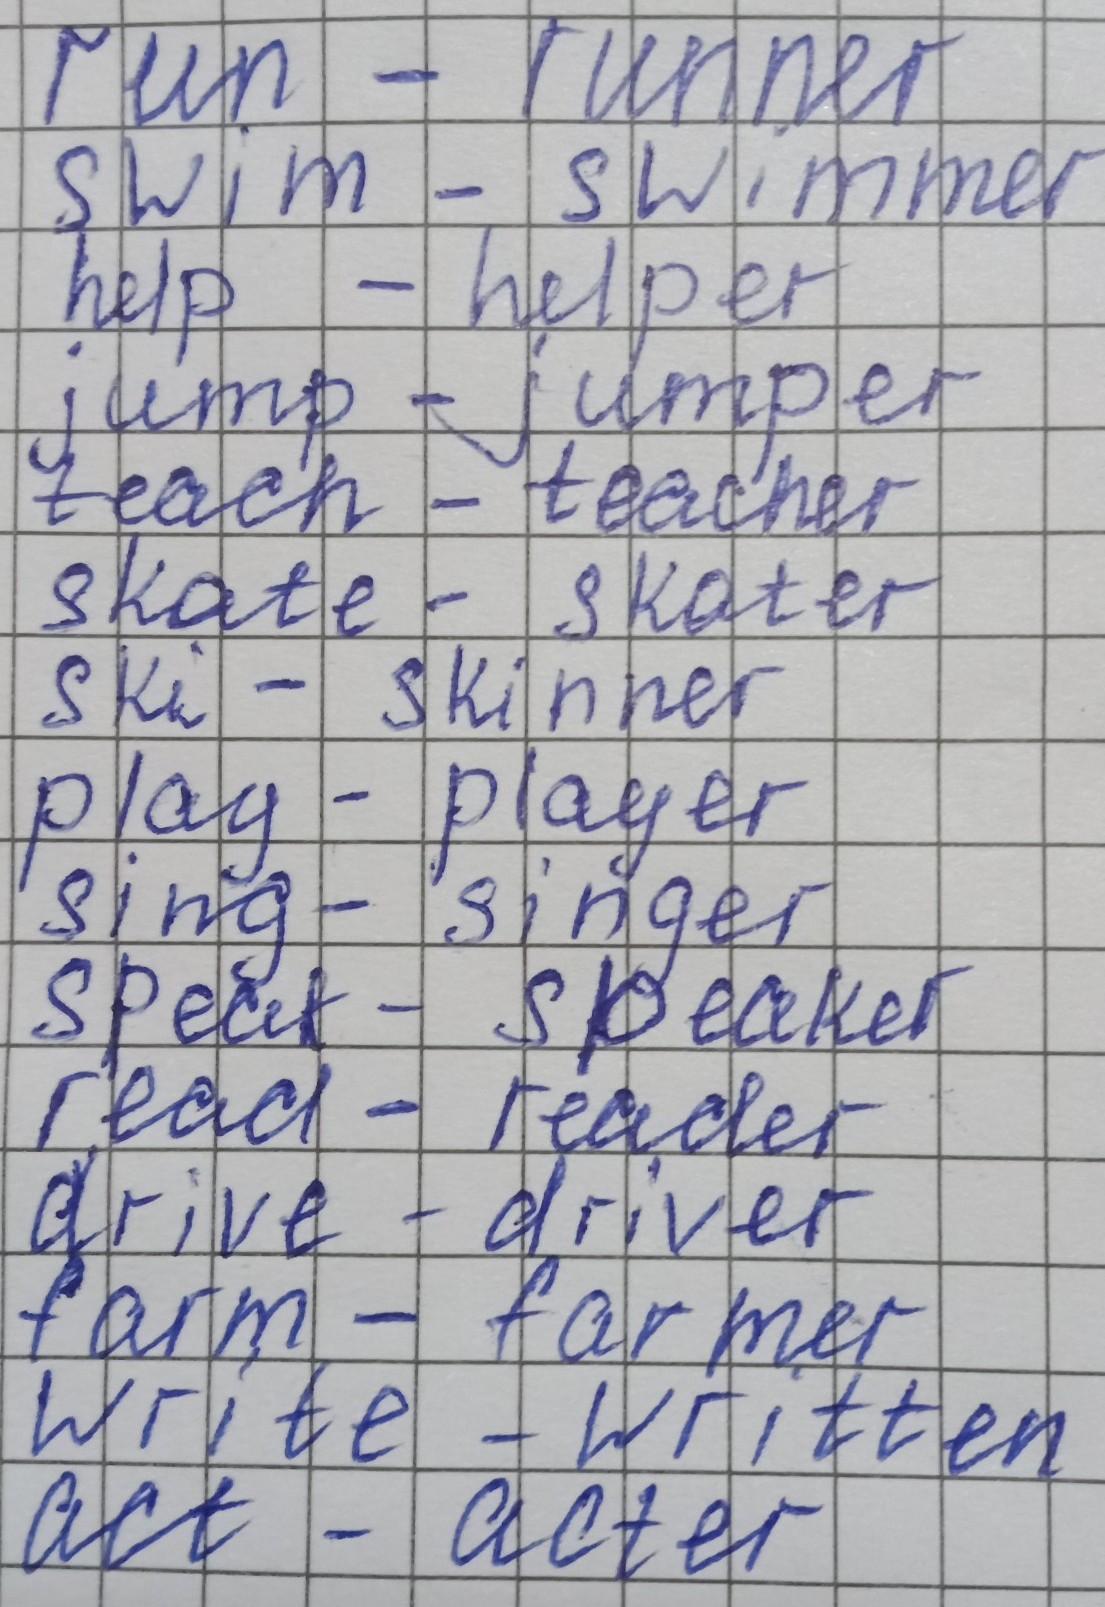 run - runner
swim - swimmer
help - helper
jump - jumper
teach - teacher
skate - skater
ski - skinner
play - player
sing - singer
speak - speaker
read - reader
drive - driver
farm - farmer
write - written
act - acter